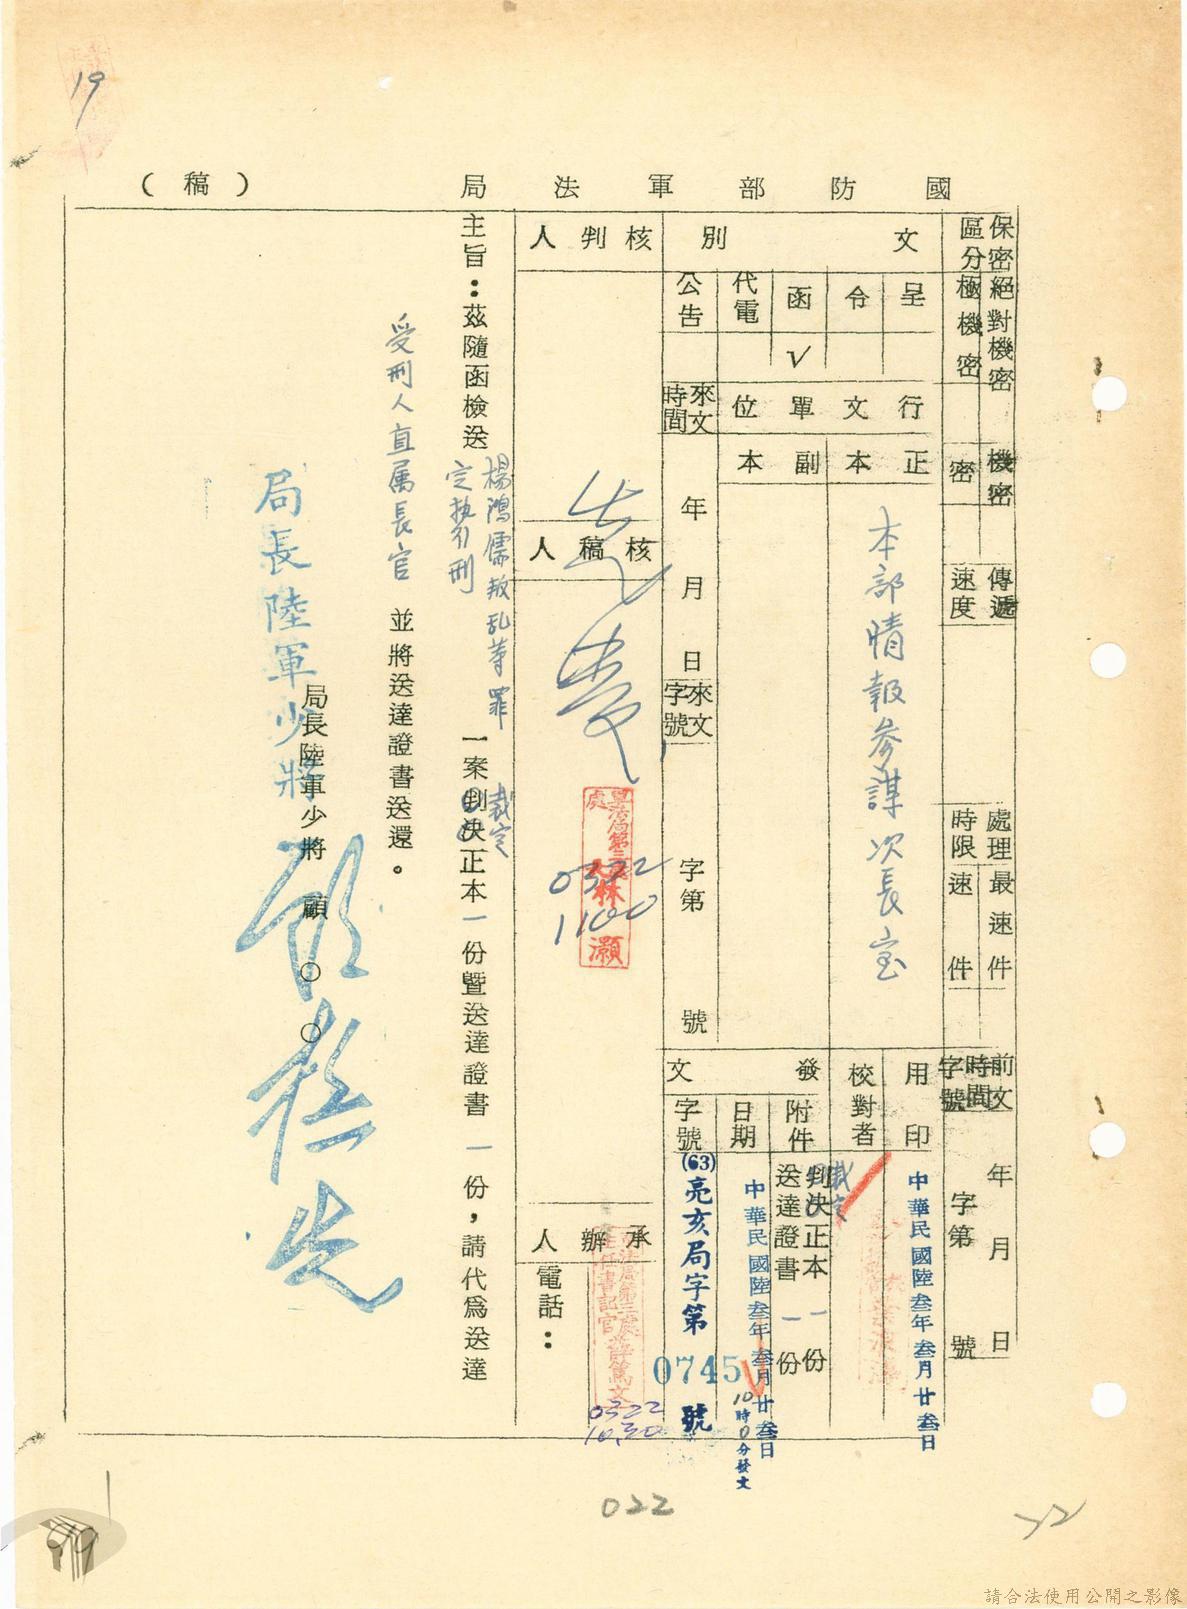 19
國防部軍法局（稿）
保密區分
絕對機密
極機密
機密
密
傳遞速度
處理時限
最速件
速件
前文時間字號
年月日
字第號
文別
呈
令
函
代電
公告
√
行文單位
正本
副本
本部情報參謀次長室
來文時間
年月日
來文字號
字第號
用印
中華民國陸叁年叁月廿叁日
校對者
發文
附件
判決正本一份
裁定
送達證書一份
日期
中華民國陸叁年叁月廿叁日
10時0分發文
字號
(63)亮亥局字第0745號
核判人
核稿人
軍法局第三處
林灝
0322
1100
承辦人
電話：
軍法局第三處
主任書記官薛篤文
0322
10,30
主旨：茲隨函檢送楊鴻儒叛乱等罪定執行刑一案判決裁定正本一份暨送達證書一份，請代為送達
受刑人直属長官並將送達證書送還。
局長陸軍少將顧○○
局長陸軍少將
022
22
99
請合法使用公開之影像